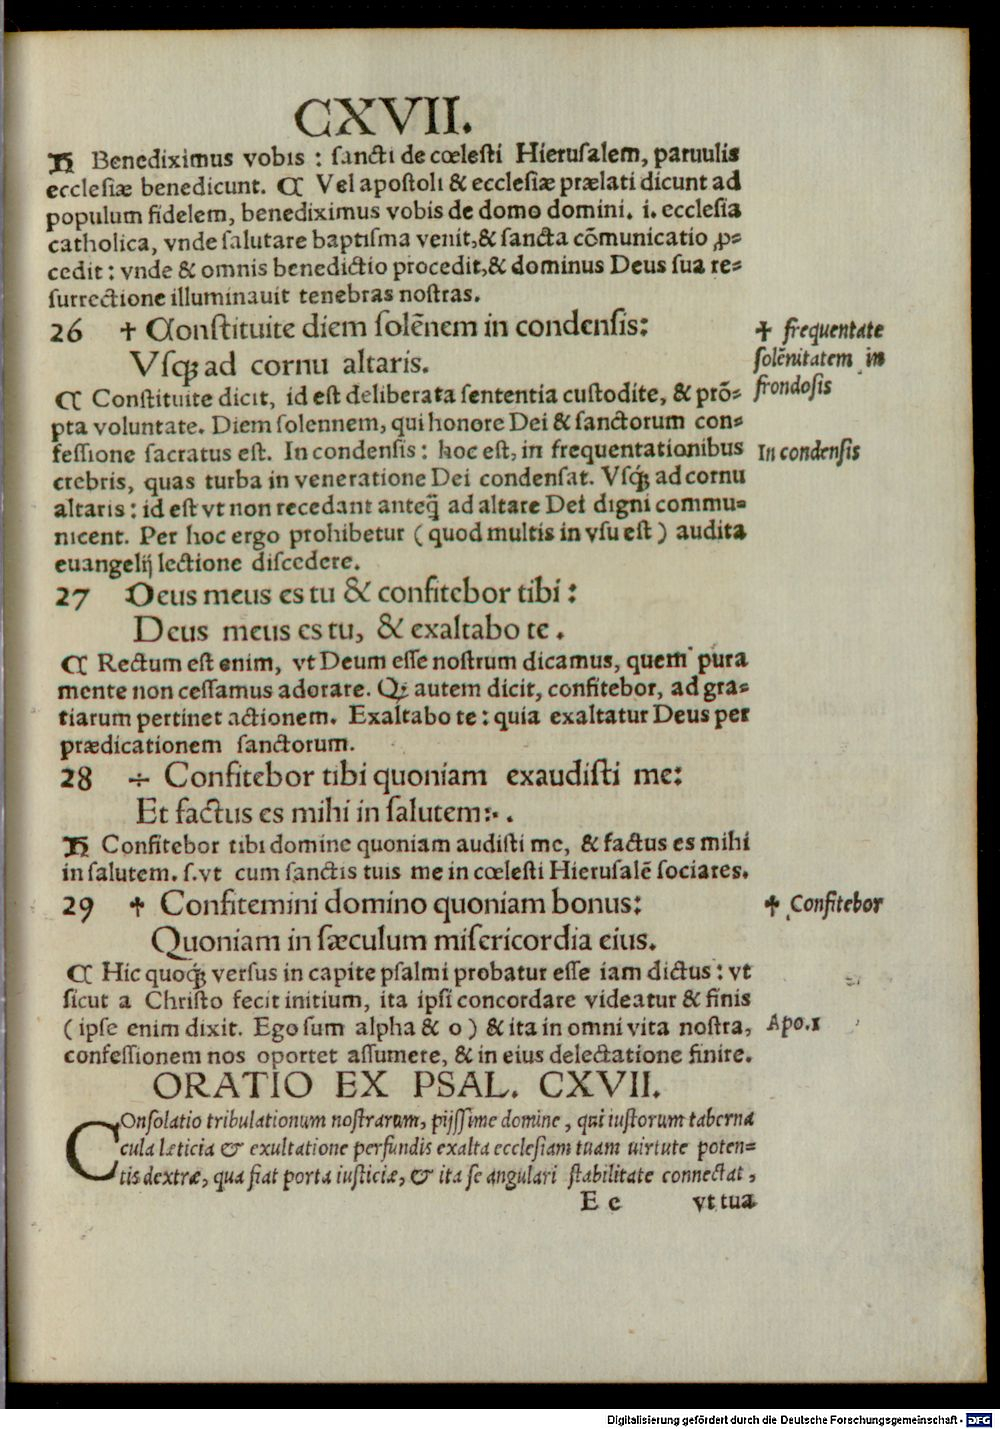 CXVII.
Ħ Benediximus vobis : ſancti de cœleſti Hieruſalem, paruulis
eccleſiæ benedicunt. ¶ Vel apoſtoli & eccleſiæ prælati dicunt ad
populum fidelem, benediximus vobis de domo domini. i. eccleſia
catholica, vnde ſalutare baptiſma venit,& ſancta cōmunicatio ꝓ⸗
cedit : vnde & omnis benedictio procedit,& dominus Deus ſua re⸗
ſurrectione illuminauit tenebras noſtras.
26 ✝ Conſtituite diem ſolēnem in condenſis:
Vſqꝫ ad cornu altaris.
¶ Conſtituite dicit, id eſt deliberata ſententia cuſtodite, & prō⸗
pta voluntate. Diem ſolennem, qui honore Dei & ſanctorum con⸗
feſſione ſacratus eſt. In condenſis : hoc eſt, in frequentationibus
crebris, quas turba in veneratione Dei condenſat. Vſqꝫ ad cornu
altaris : id eſt vt non recedant anteq̄ ad altare Dei digni commu⸗
nicent. Per hoc ergo prohibetur ( quod multis in vſu eſt ) audita
euangelij lectione diſcedere.
27 Deus meus es tu & confitebor tibi :
Deus meus es tu, & exaltabo te .
¶ Rectum eſt enim, vt Deum eſſe noſtrum dicamus, quem pura
mente non ceſſamus adorare. Qꝫ autem dicit, confitebor, ad gra⸗
tiarum pertinet actionem. Exaltabo te : quia exaltatur Deus per
prædicationem ſanctorum.
28 ÷ Confitebor tibi quoniam exaudiſti me:
Et factus es mihi in ſalutem:· .
Ħ Confitebor tibi domine quoniam audiſti me, & factus es mihi
in ſalutem. ſ.vt cum ſanctis tuis me in cœleſti Hieruſalē ſociares.
29 ✝ Confitemini domino quoniam bonus:
Quoniam in ſæculum miſericordia eius.
¶ Hic quoqꝫ verſus in capite pſalmi probatur eſſe iam dictus : vt
ſicut a Chriſto fecit initium, ita ipſi concordare videatur & finis
( ipſe enim dixit. Ego ſum alpha & o ) & ita in omni vita noſtra,
confeſſionem nos oportet aſſumere, & in eius delectatione finire.
ORATIO EX PSAL. CXVII.
COnſolatio tribulationum noſtrarum, pijſſime domine , qui iuſtorum taberna
cula læticia & exultatione perfundis exalta eccleſiam tuam uirtute poten⸗
tis dextræ, qua fiat porta iuſticiæ, & ita ſe angulari ſtabilitate connectat ,
E e vt tua
✝ frequentate
ſolēnitatem in
frondoſis
In condenſis
✝ Confitebor
Apo.1
Digitalisierung gefördert durch die Deutsche Forschungsgemeinschaft - DFG